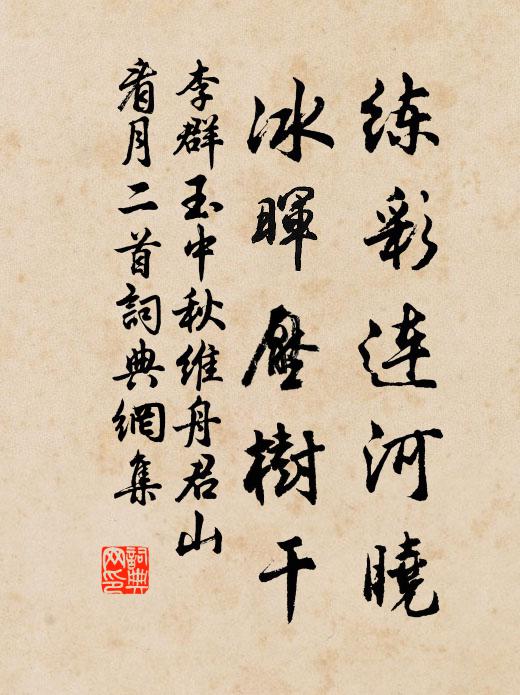 练彩连河曉
冰暉壓樹干
李群玉中秋维舟君山
看月二首詞典網集
詞典
网印